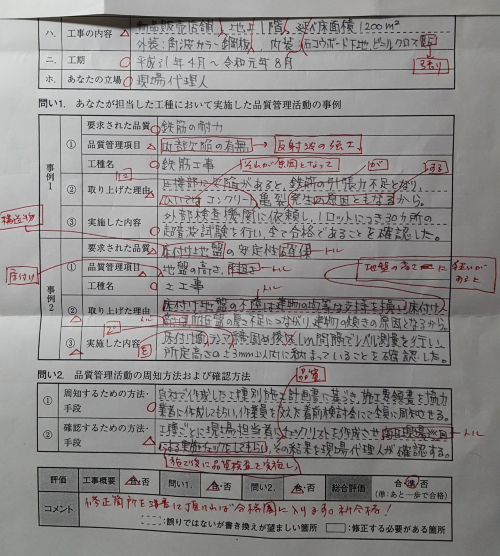 ハ. 工事の内容 物品販売店舗、地上1階、延べ床面積1200m²
外装：角波カラー鋼板 内装：石コウボード下地、ビニールクロス
張り
ニ. 工期 平成31年4月～令和元年8月
ホ. あなたの立場 現場代理人
問い1. あなたが担当した工種において実施した品質管理活動の事例
事例1
① 要求された品質 鉄筋の耐力
品質管理項目 内部欠陥の有無 反射波の強さ
工種名 鉄筋工事 それが原因となって が
② 取り上げた理由 圧接部に欠陥があると、鉄筋の引張力不足となり、 する
ひいてはコンクリート亀裂発生の原因ともなるから。
構造物
③ 実施した内容 外部検査機関に依頼し、1ロットにつき30カ所の
超音波試験を行い、全て合格であることを確認した。
事例2
① 要求された品質 床付け地盤の安定性確保 トル
床付け
品質管理項目 地盤の高さ、 トル
地盤の高さに狂いが
あると
工種名 土工事 トル
② 取り上げた理由 床付け地盤の不陸は建物の均等な支持を損い、床付け
高さ不足につながり、建物の傾きの原因となるから。
③ 実施した内容 床付け面 1m間隔でレベル測量を行い、
を
所定高さの±3mm以内に納まっていることを確認した。
品質
問い2. 品質管理活動の周知方法および確認方法
① 周知するための方法・手段 自社で作成した工種別施工計画書に基づき、施工要領書を協力
業者に作成してもらい、作業員を交えた着前検討会にて全員に周知させる。
② 確認するための方法・手段 工種ごとに現場担当者にチェックリストを作成させ、 トル
その結果を現場代理人が確認する。
施工後に品質検査を実施し
評価 工事概要 合・否 問い1. 合・否 問い2. 合・否 総合評価 合・準・否
(準：あと一歩で合格)
コメント 修正箇所を清書して頂ければ合格圏に入ります。祈合格！
：誤りではないが書き換えが望ましい箇所 ：修正する必要がある箇所